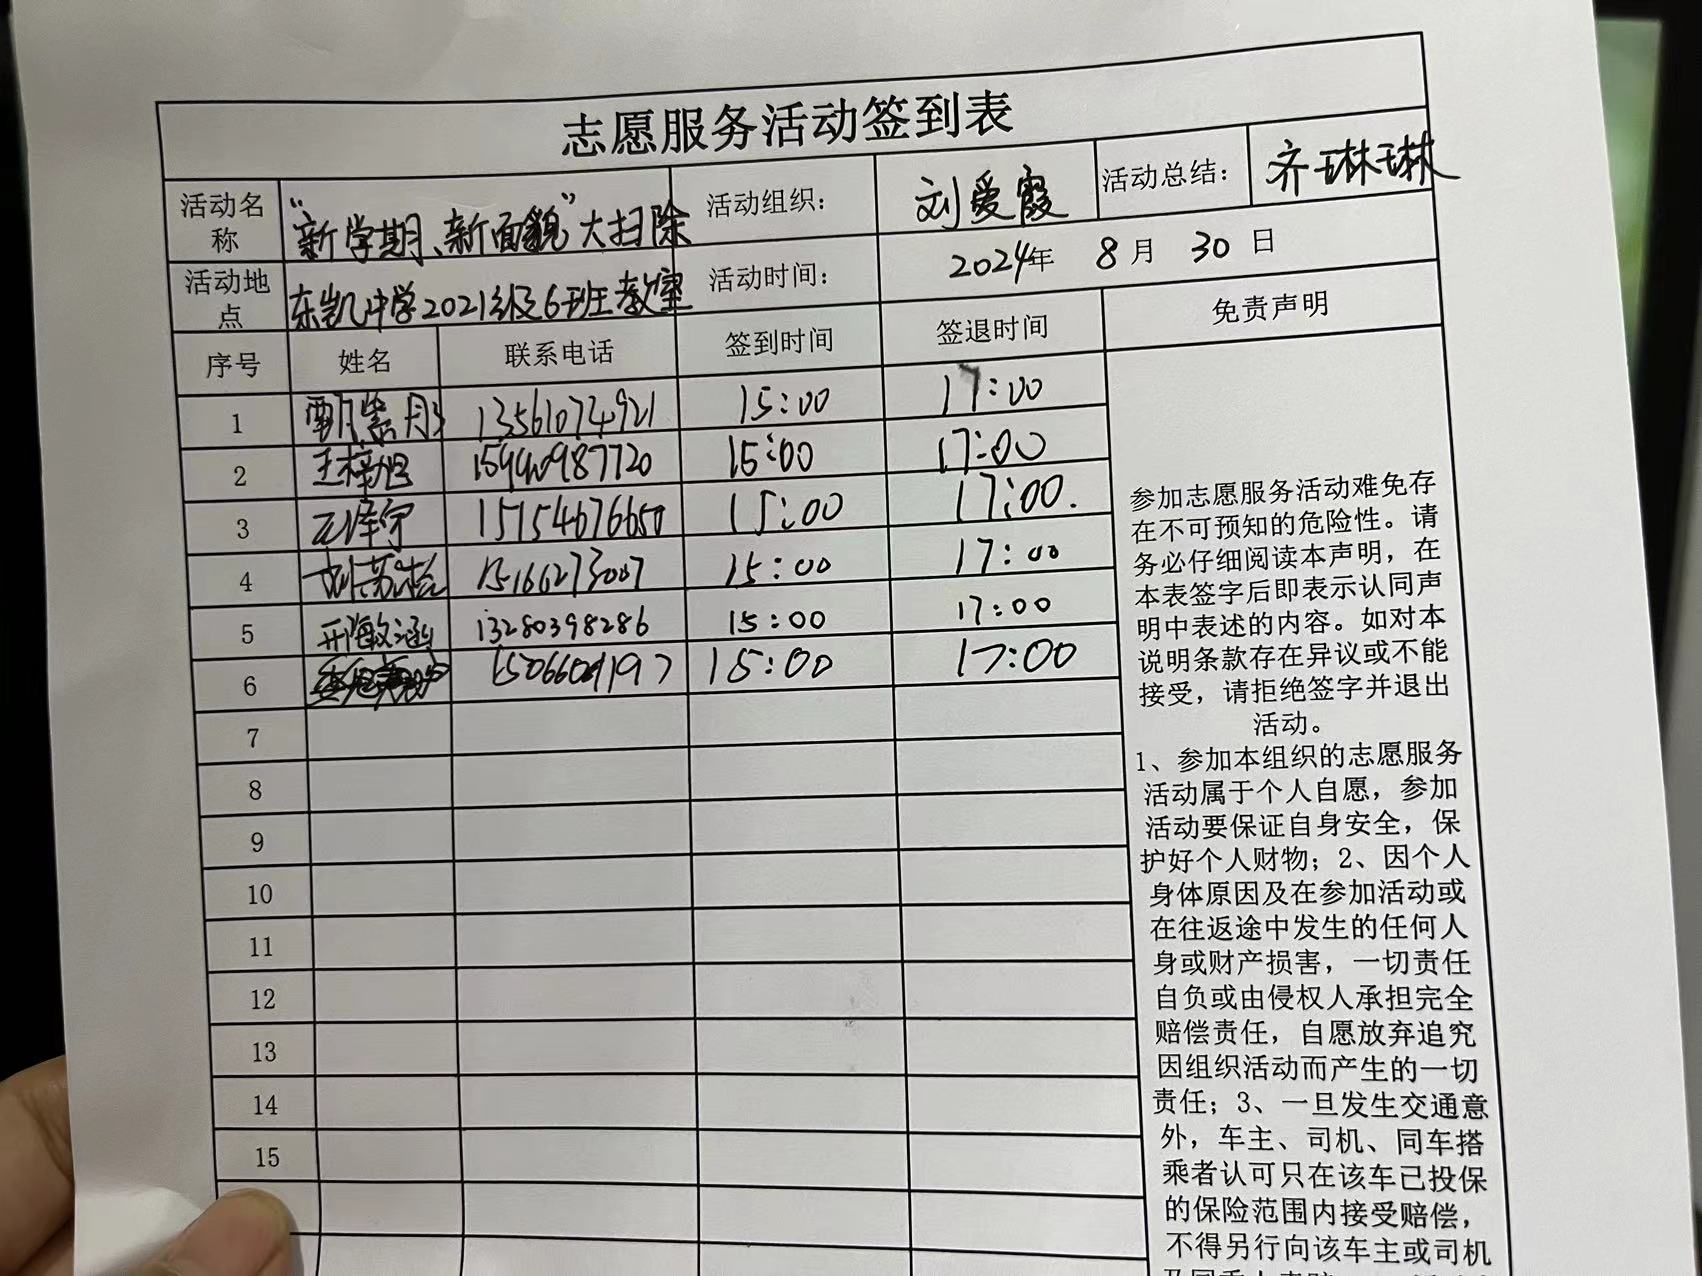 志愿服务活动签到表
活动名称 “新学期、新面貌”大扫除 活动组织： 刘爱霞 活动总结： 齐琳琳
活动地点 东凯中学2021级6班教室 活动时间： 2024年 8月 30日
序号 姓名 联系电话 签到时间 签退时间 免责声明
1 13561074921 15:00 17:00
2 王梓旭 15940987720 15:00 17:00
3 15154676650 15:00 17:00.
4 15166273007 15:00 17:00
5 邢敏涵 13280398286 15:00 17:00
6 15:00 17:00
7
8
9
10
11
12
13
14
15
参加志愿服务活动难免存
在不可预知的危险性。请
务必仔细阅读本声明，在
本表签字后即表示认同声
明中表述的内容。如对本
说明条款存在异议或不能
接受，请拒绝签字并退出
活动。
1、参加本组织的志愿服务
活动属于个人自愿，参加
活动要保证自身安全，保
护好个人财物；2、因个人
身体原因及在参加活动或
在往返途中发生的任何人
身或财产损害，一切责任
自负或由侵权人承担完全
赔偿责任，自愿放弃追究
因组织活动而产生的一切
责任；3、一旦发生交通意
外，车主、司机、同车搭
乘者认可只在该车已投保
的保险范围内接受赔偿，
不得另行向该车主或司机